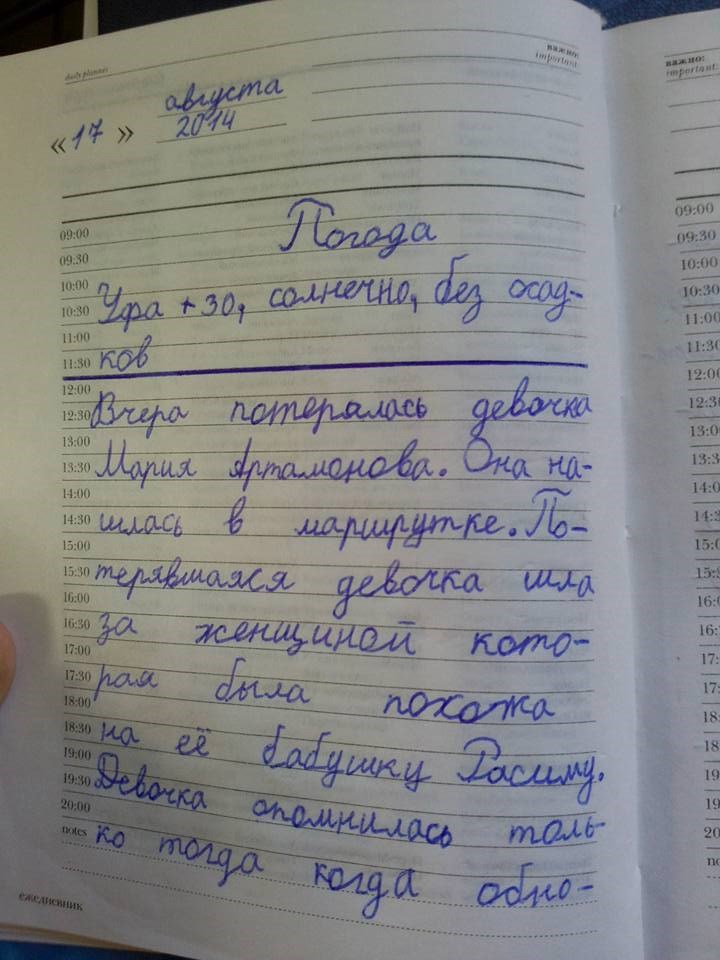 daily planner
важно:
important:
« 17 » августа
2014
09:00
Погода
09:30
10:00
10:30 Уфа +30, солнечно, без осад-
11:00
11:30 ков
12:00
12:30 Вчера потерялась девочка
13:00
13:30 Мария Артамонова. Она на-
14:00
14:30 шлась в маршрутке. По-
15:00
15:30 терявшаяся девочка шла
16:00
16:30 за женщиной кото-
17:00
17:30 рая была похожа
18:00
18:30 на её бабушку Расиму.
19:00
19:30 Девочка опомнилась толь-
20:00
notes ко тогда когда обно-
ежедневник
важно:
important:
09:00
09:30
10:00
10:30
11:00
11:30
12:00
12:30
13:0
13:3
14:0
14:
15:
15:
16:
16:
17:
17:
18
18
19
19
20
no